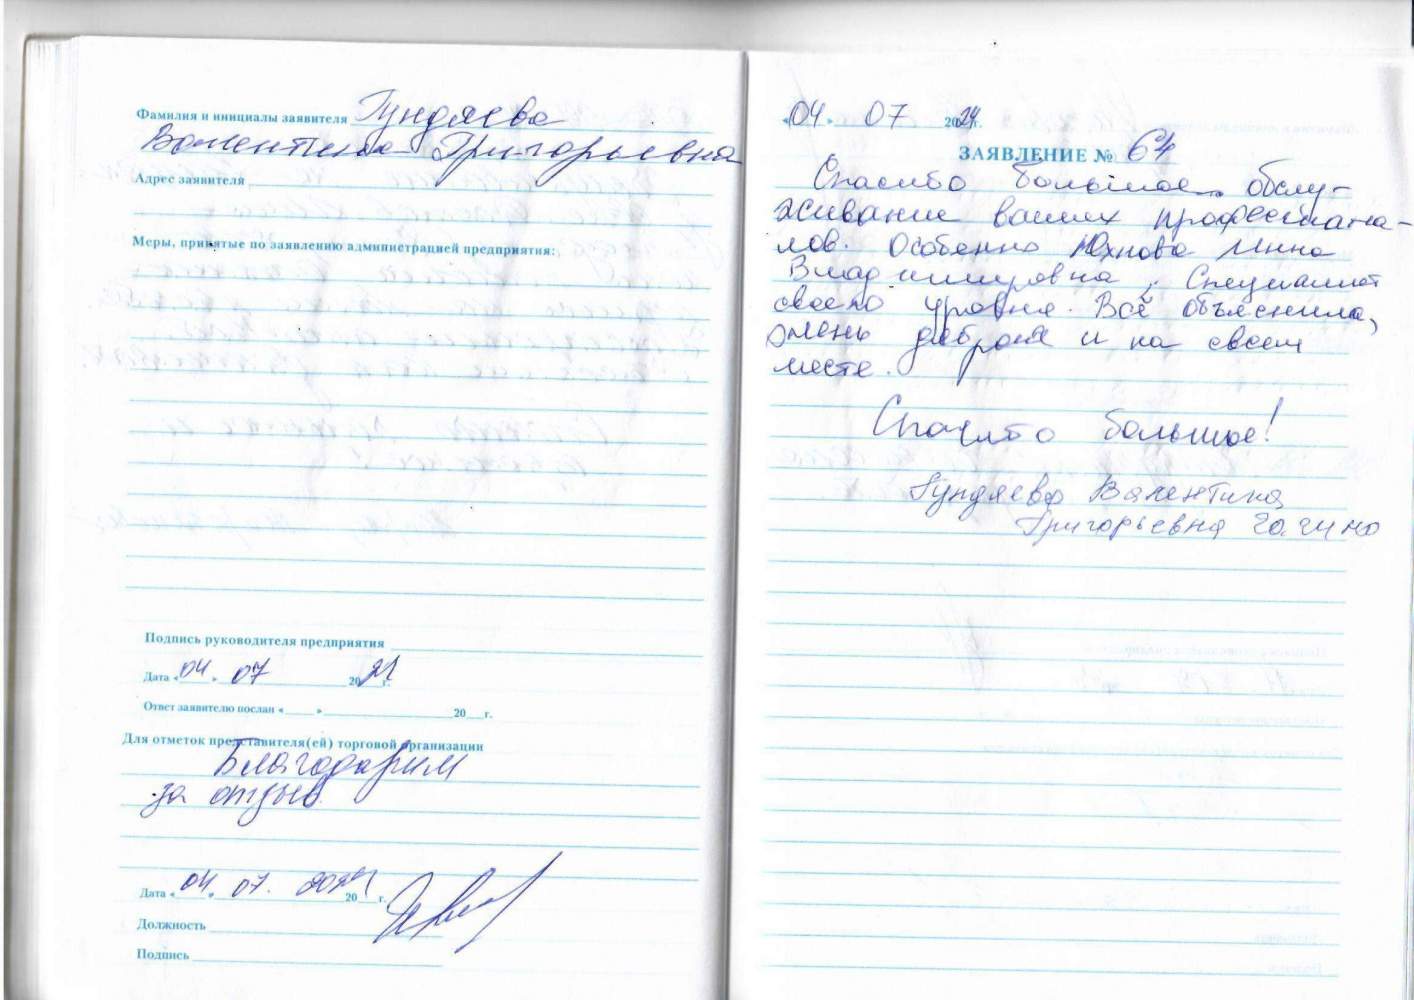 Фамилия и инициалы заявителя Гундяева
Валентина Григорьевна
Адрес заявителя
Меры, принятые по заявлению администрацией предприятия:
Подпись руководителя предприятия
Дата «04» 07 2024 г.
Ответ заявителю послан « » 20 г.
Для отметок представителя(ей) торговой организации
Благодарим
за отзыв
Дата «04» 07. 2024 20 г.
Должность
Подпись
«04» 07 2024 г.
ЗАЯВЛЕНИЕ № 64
Спасибо большое обслу-
живание ваших профессиона-
лов. Особенно Юхнова Инна
Владимировна, специалист
своего уровня. Всё объяснила,
очень добрая и на своем
месте.
Спасибо большое!
Гундяева Валентина
Григорьевна